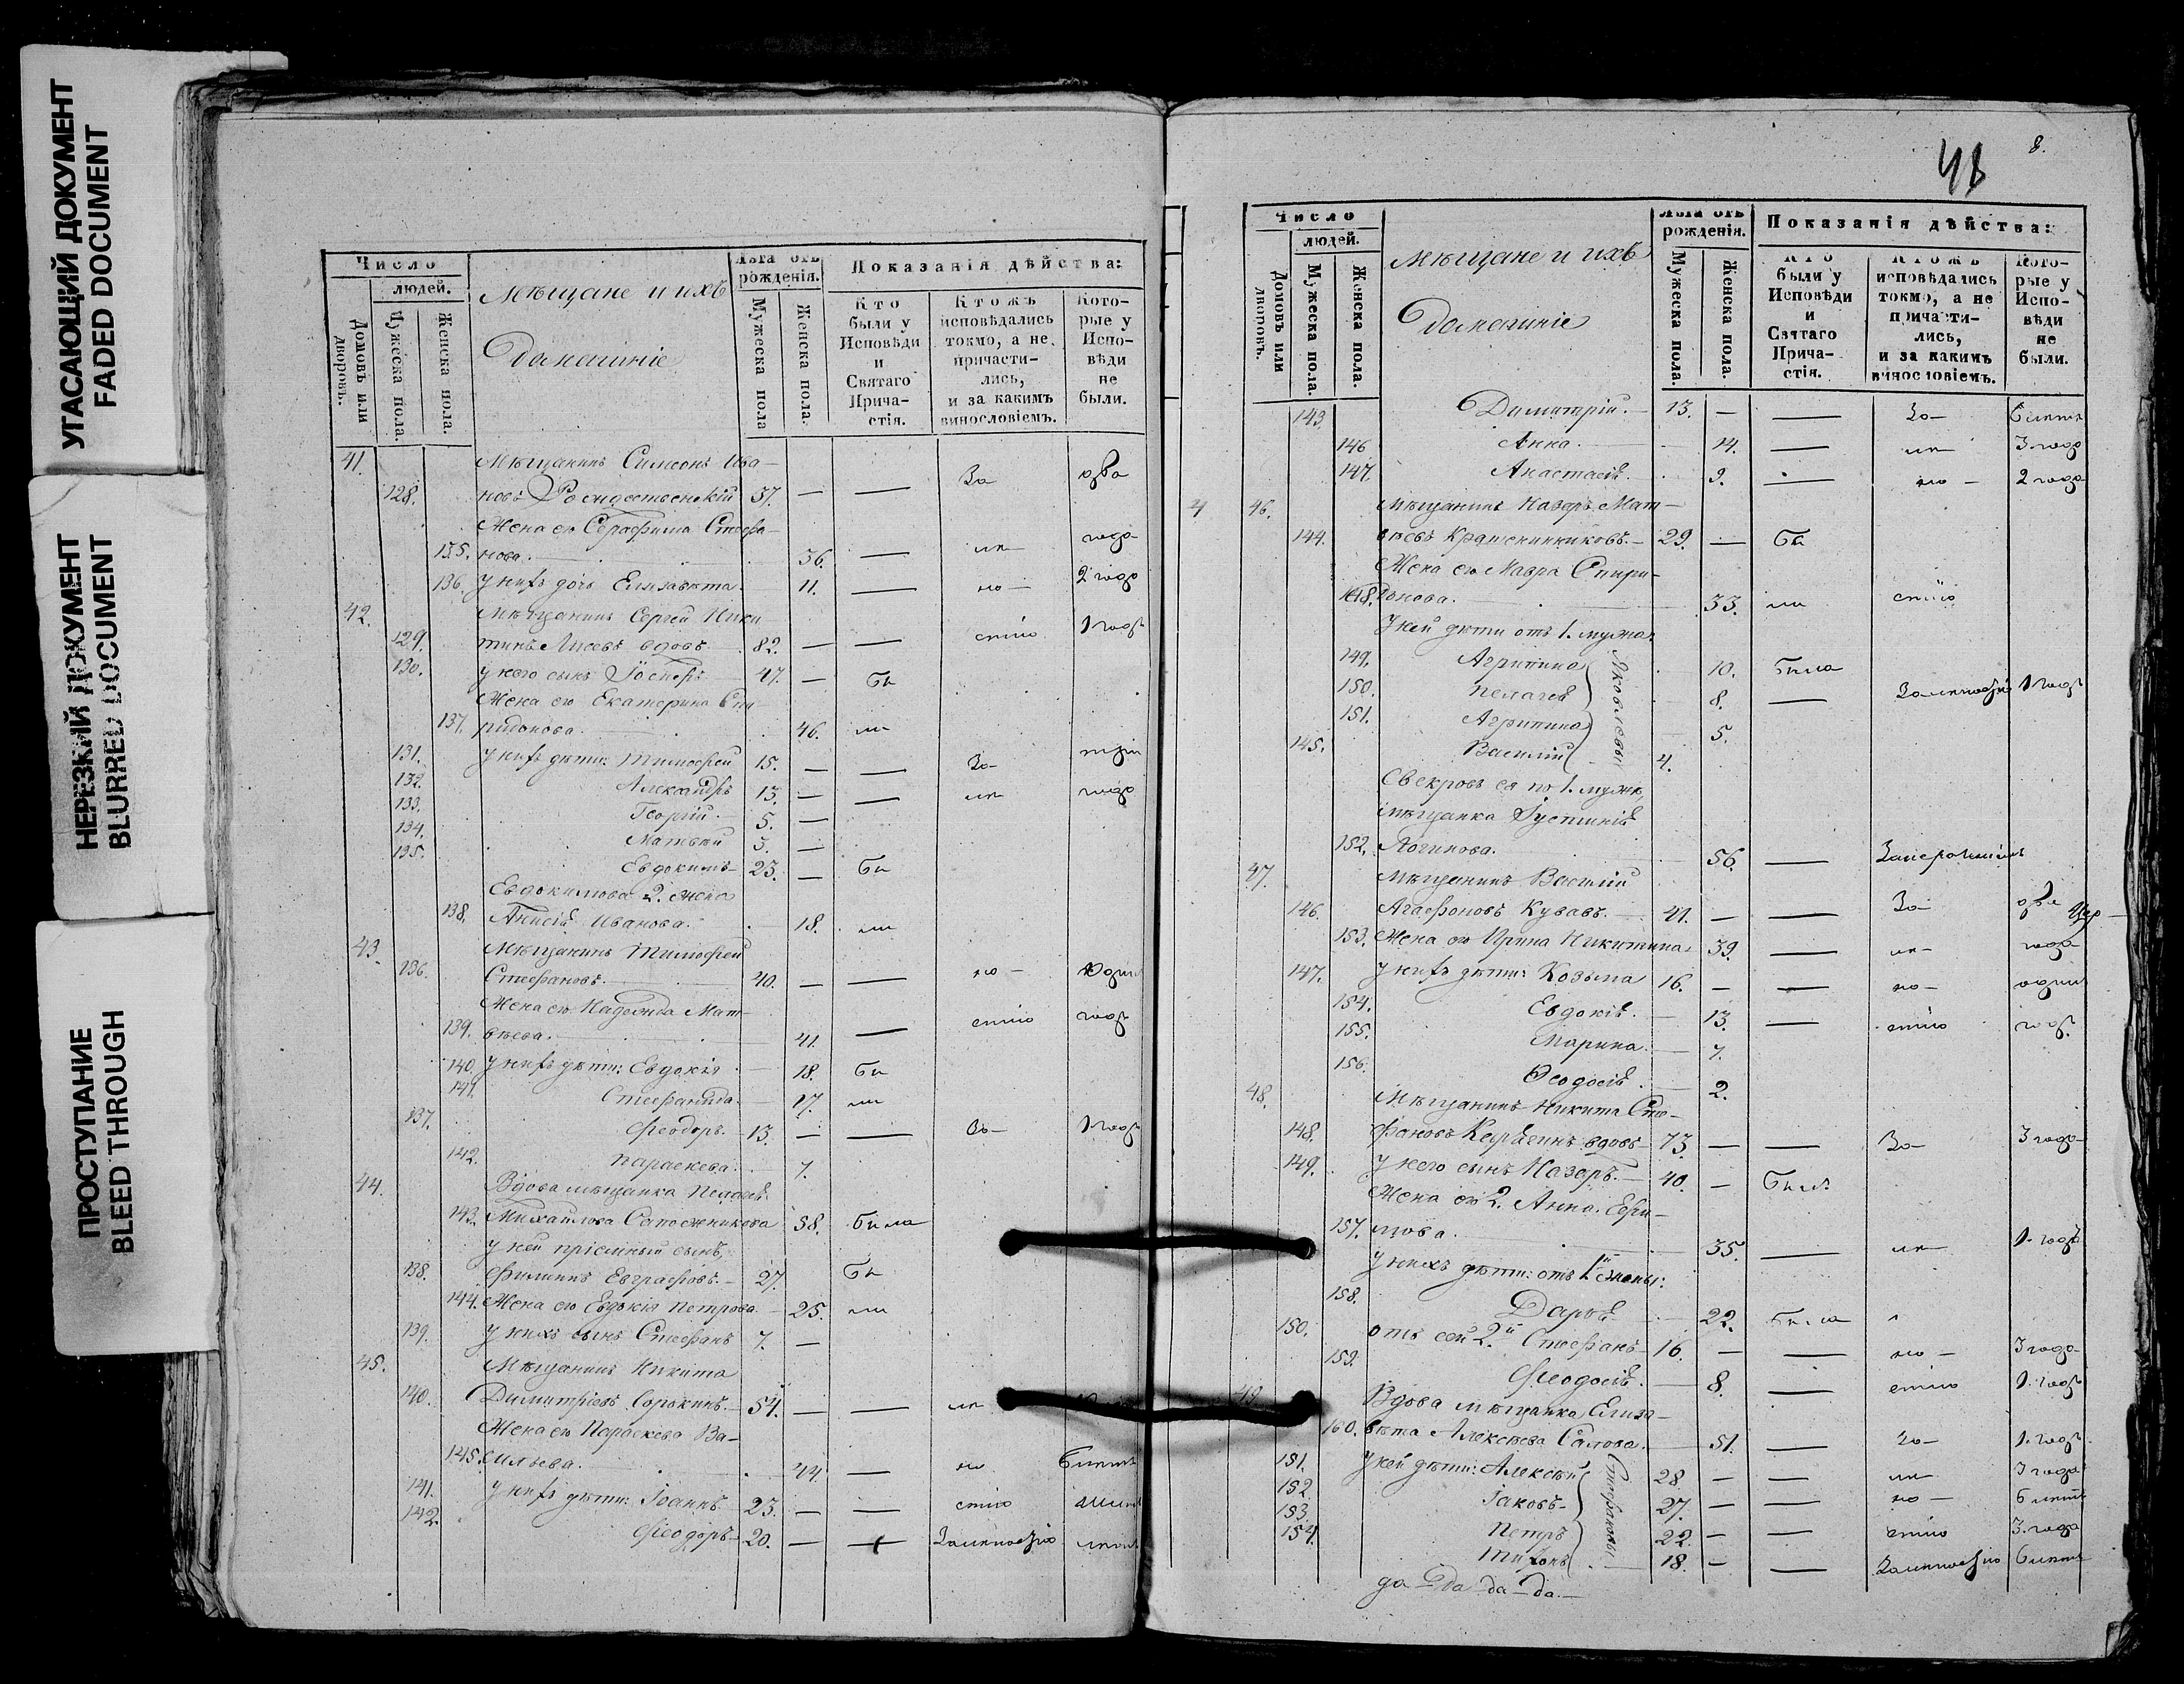 УГАСАЮЩИЙ ДОКУМЕНТ
FADED DOCUMENT
НЕРЕЗКИЙ ДОКУМЕНТ
BLURRED DOCUMENT
ПРОСТУПАНИЕ
BLEED THROUGH
Число
людей.
Домовъ или дворовъ.
Мужеска пола.
Женска пола.
Мѣщане и ихъ
Домашніе
Лѣта отъ рожденія.
Мужеска пола
Женска пола.
Показанія дѣйства:
Кто были у Исповѣди и Святаго Причастія.
Ктожъ исповѣдались токмо, а не причастились, и за какимъ винословіемъ.
Которые у Исповѣди не были.
41. Мѣщанинъ Симеонъ Ива- За два
128. новъ Рождественскій 37. — —
Жена его Серафима Стефа-
135. нова. 36. — года
136. У нихъ дочь Елизавета 11. — 2 года
42. Мѣщанинъ Сергей Ники-
129. тинъ вдовъ 82. — — стію 1 годъ
130. У него сынъ 47. — Бы
Жена его Екатерина Спи-
137. ридонова. 46. ли
131. У нихъ дѣти: Тимофей 15. — — За три
132. Александръ 13. — — года
133. Георгій 5. —
134. Матвей 3. —
135. Евдокимъ 23. — Бы
Евдокимова 2. жена
138. Анисія Иванова. 18. ли
43. Мѣщанинъ Тимофей
136. Стефановъ. 40. — — но — Одинъ
Жена его Надежда Мат-
139. вѣева. 41. — стію годъ
140. У нихъ дѣти: Евдокія 18. Бы
141. Стефанида 17. ли
137. Феодоръ. 13. — — За 1 годъ
142. Параскева. 7.
44. Вдова мѣщанка Пелагея
143. Михайлова Сапожникова 58. была
У ней пріемный сынъ,
138. Филиппъ Евграфовъ. 27. Бы
144. Жена его Евдокія Петрова 25. ли
139. У нихъ сынъ Стефанъ 7. —
45. Мѣщанинъ Никита
140. Димитріевъ Сорокинъ. 54. — —
Жена его Параскева Ва-
145. сильева. 44. — но
141. У нихъ дѣти: Іоаннъ 23. — — стію
142. Феодоръ 20. — —
48
8.
Число
людей.
Домовъ или дворовъ.
Мужеска пола.
Женска пола.
Мѣщане и ихъ
Домашніе
Лѣта отъ рожденія.
Мужеска пола.
Женска пола.
Показанія дѣйства:
Кто были у Исповѣди и Святаго Причастія.
Ктожъ исповѣдались токмо, а не причастились, и за какимъ винословіемъ.
Которые у Исповѣди не были.
143. Димитрій. 13. — — За 6 лѣтъ
146. Анна. 14. — 3 года
147. Анастасія. 9. — но — 2 года
46. Мѣщанинъ Назаръ Мат-
144. вѣевъ Крашенинниковъ. 29. — Бы
Жена его Мавра Спири-
148. донова. 33. ли стію
У ней дѣти отъ 1. мужа:
149. Агрипина 10. Была
150. Пелагея 8. — 1 годъ
151. Агрипина 5.
145. Василій 4.
Яковлевы
Свекровь ея по 1. мужѣ,
мѣщанка Іустинія
152. Логинова. 56 —
47. Мѣщанинъ Василій
146. Агафоновъ 41. — — За две
153. Жена его Ирина Никитина 39. — года
147. У нихъ дѣти: Козьма 16. — — но — одинъ
154. Евдокія. 13. — стію годъ
155. Марина. 7.
156. Феодосія. 2.
48. Мѣщанинъ Никита Сте-
148. фановъ вдовъ 73. — — За 3 года
149. У него сынъ Назаръ. 40. — Былъ
Жена его 2. Анна Ефи-
157. мова. 35. — 1. годъ
У нихъ дѣти: отъ 1й жены:
158. Дарья 22. Была
150. отъ сей 2й Стефанъ 16. — — но — 3 года
159. Феодосія. 8. — стію 1. годъ
49. Вдова мѣщанка Елиза-
160. вѣта Алексѣева Салова. 51. — За 1. годъ
151. У ней дѣти: Алексѣй 28 — — 3 года
152. Іаковъ 27. — — но — 6 лѣтъ
153. Петръ 22. — — стію 3. года
154. Тихонъ 18. — — 6 лѣтъ
Стефановы
да да да да.